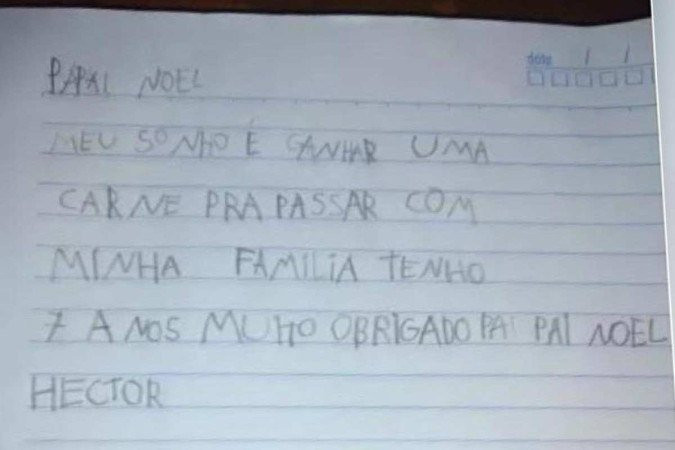 data / /
PAPAI NOEL
MEU SONHO É GANHAR UMA
CARNE PRA PASSAR COM
MINHA FAMÍLIA TENHO
7 ANOS MUITO OBRIGADO PAI PAI NOEL
HECTOR